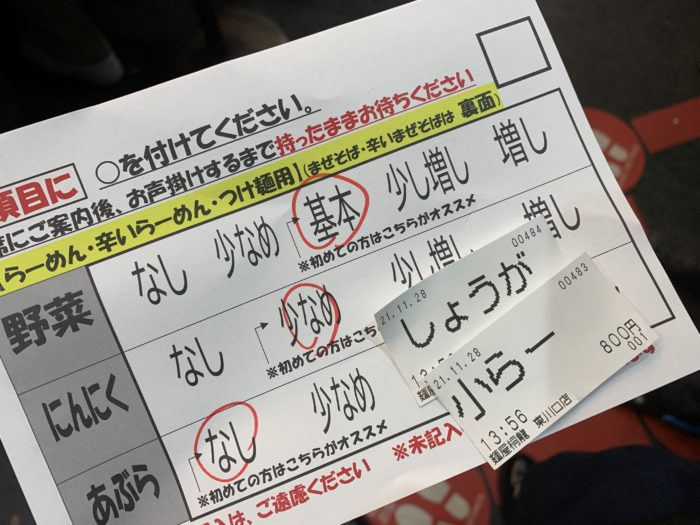 項目に
○を付けてください。
席にご案内後、お声掛けするまで持ったままお待ちください
らーめん・辛いらーめん・つけ麺用】(まぜそば・辛いまぜそばは 裏面)
野菜
なし 少なめ 基本 少し増し 増し
※初めての方はこちらがオススメ
にんにく
なし 少なめ 少し増し 増し
※初めての方はこちら
あぶら
なし 少なめ
※初めての方はこちらがオススメ
入は、ご遠慮ください ※未記入
00484
21.11.28
しょうが
13:56
00483
21.11.28
小らー
800円
001
13:56 東川口店
麺屋桐龍